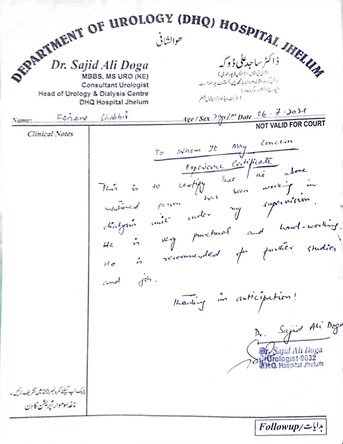 DEPARTMENT OF UROLOGY (DHQ) HOSPITAL JHELUM
ھوالشافی
Dr. Sajid Ali Doga
MBBS, MS URO (KE)
Consultant Urologist
Head of Urology & Dialysis Centre
DHQ Hospital Jhelum
ڈاکٹر ساجد علی ڈوگہ
Name: Age/Sex Date 06-7-2021
NOT VALID FOR COURT
Clinical Notes
To Whom It May Concern
Experience Certificate
This is to certify that the above
mentioned person has been working in
dialysis unit under my supervision.
He is very punctual and hard-working.
He is recommended for further studies
and job.
Thanking in anticipation!
Dr. Sajid Ali Doga
Dr. Sajid Ali Doga
Urologist-9032
DHQ, Hospital Jhelum
Followup/ہدایات